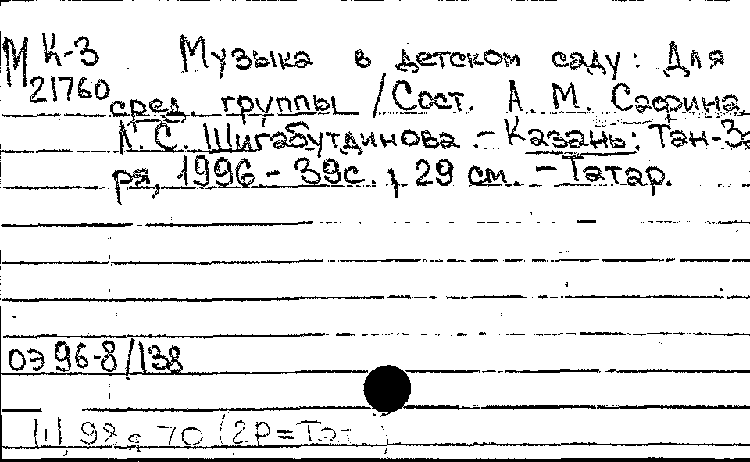 М К-3 Музыка в детском саду: Для
21760 сред. группы / Сост. А. М. Сафина,
Л. С. Шигабутдинова. - Казань: Тан-За
ря, 1996. - 39с. ; 29 см. - Татар.
ОЭ 96-8/138
70 (2Р=Тат.)